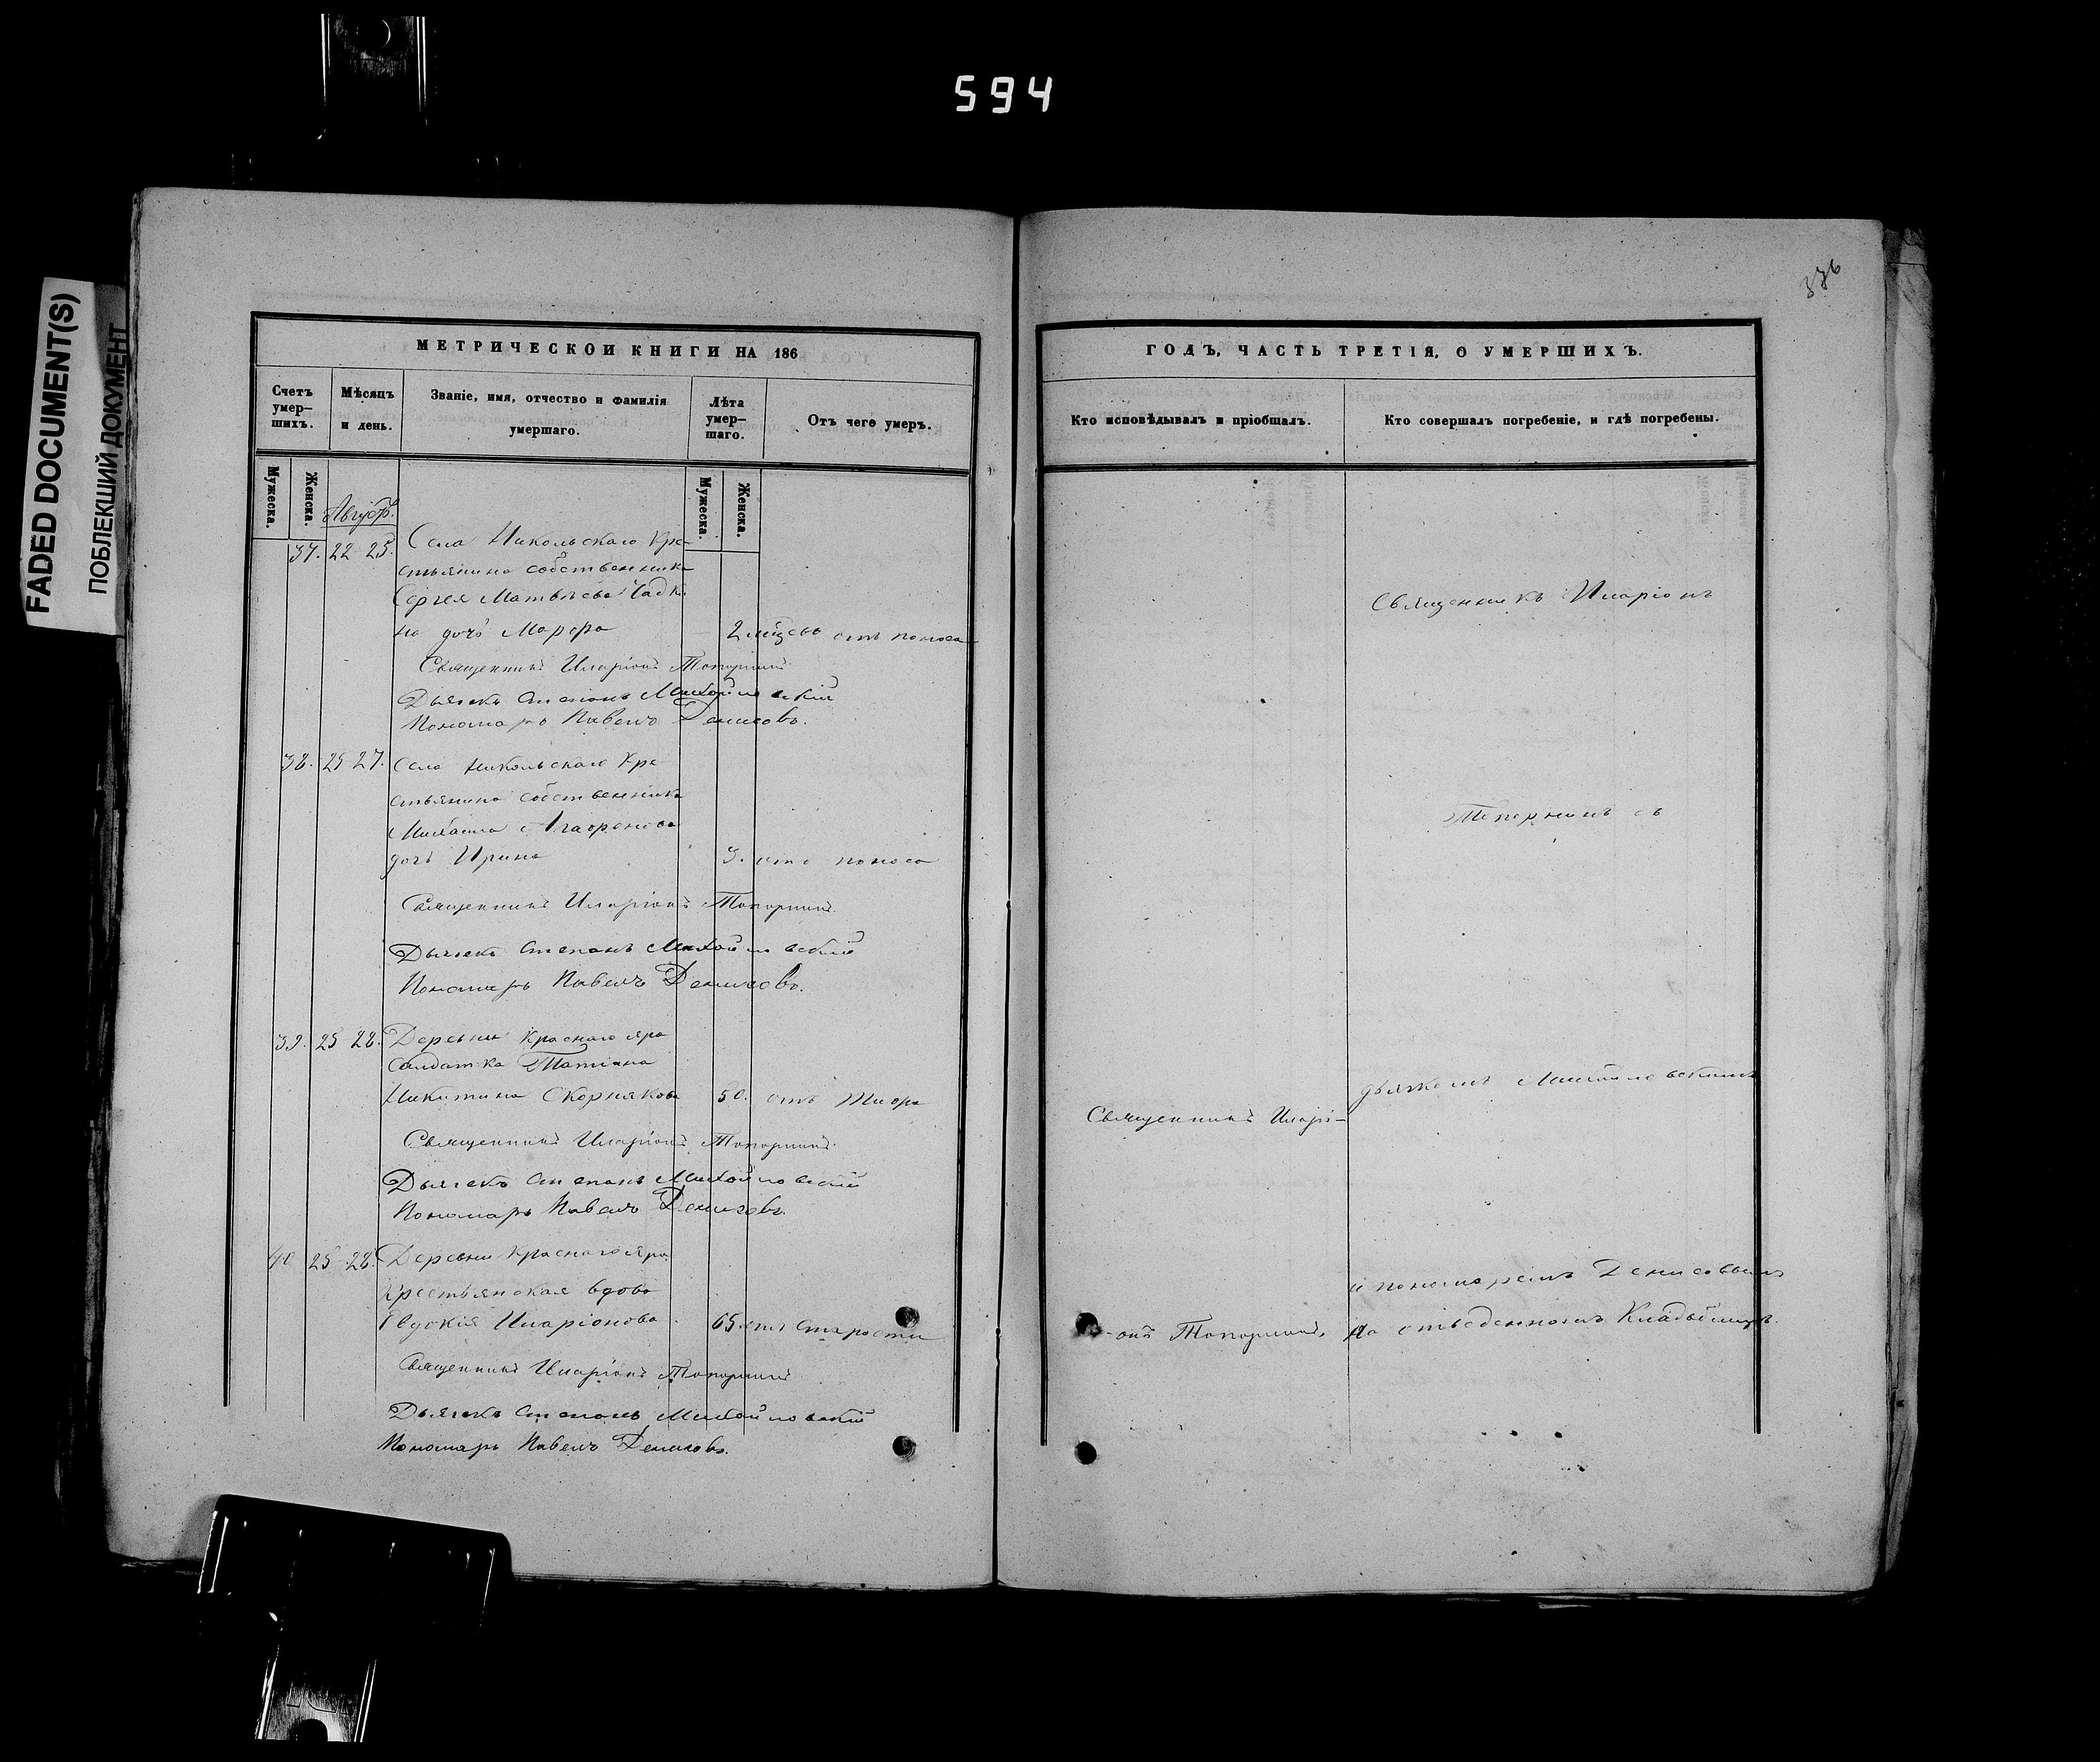 594
FADED DOCUMENT(S)
ПОБЛЕКШИЙ ДОКУМЕНТ
376
МЕТРИЧЕСКОЙ КНИГИ НА 186
Счетъ умер-шихъ.
Мѣсяцъ и день.
Званіе, имя, отчество и фамилія умершаго.
Лѣта умер-шаго.
Отъ чего умеръ.
Мужеска.
Женска.
Мужеска.
Женска.
Августъ.
37. 22 25. Села Никольскаго Кре-
стьянина собственника
Сергея Матвѣева Чадк
на дочь Марфа 2 мѣсев отъ поноса
Священникъ Иларіонъ Топорнинъ
Дьячекъ Степанъ Михайловскій
Пономарь Павелъ Денисовъ.
38. 25 27. Села Никольскаго Кре
стьянина собственника
Михаила Агафонова
дочь Ирина 3. отъ поноса
Священникъ Иларіонъ Топорнинъ.
Дьячекъ Степанъ Михайловскій
Пономарь Павелъ Денисовъ.
39. 25 28. Деревни Краснаго яра
Салдатка Татіана
Никитина Скорнякова 50. отъ Тифа
Священникъ Иларіонъ Топорнинъ.
Дьячекъ Степанъ Михайловскій
Пономарь Павелъ Денисовъ.
40 25 28. Деревни Краснаго яра
Крестьянская вдова
Евдокія Иларіонова 65. отъ Старости
Священникъ Иларіонъ Топорнинъ
Дьячекъ Степанъ Михайловскій
Пономарь Павелъ Денисовъ.
ГОДЪ, ЧАСТЬ ТРЕТІЯ, О УМЕРШИХЪ.
Кто исповѣдывалъ и пріобщалъ.
Кто совершалъ погребеніе, и гдѣ погребены.
Священникъ Иларіонъ
Топорнинъ съ
дьячкомъ Михайловскимъ
Священникъ Иларі-
и пономаремъ Денисовымъ
-онъ Топорнинъ,
На отведенномъ Кладбищѣ.